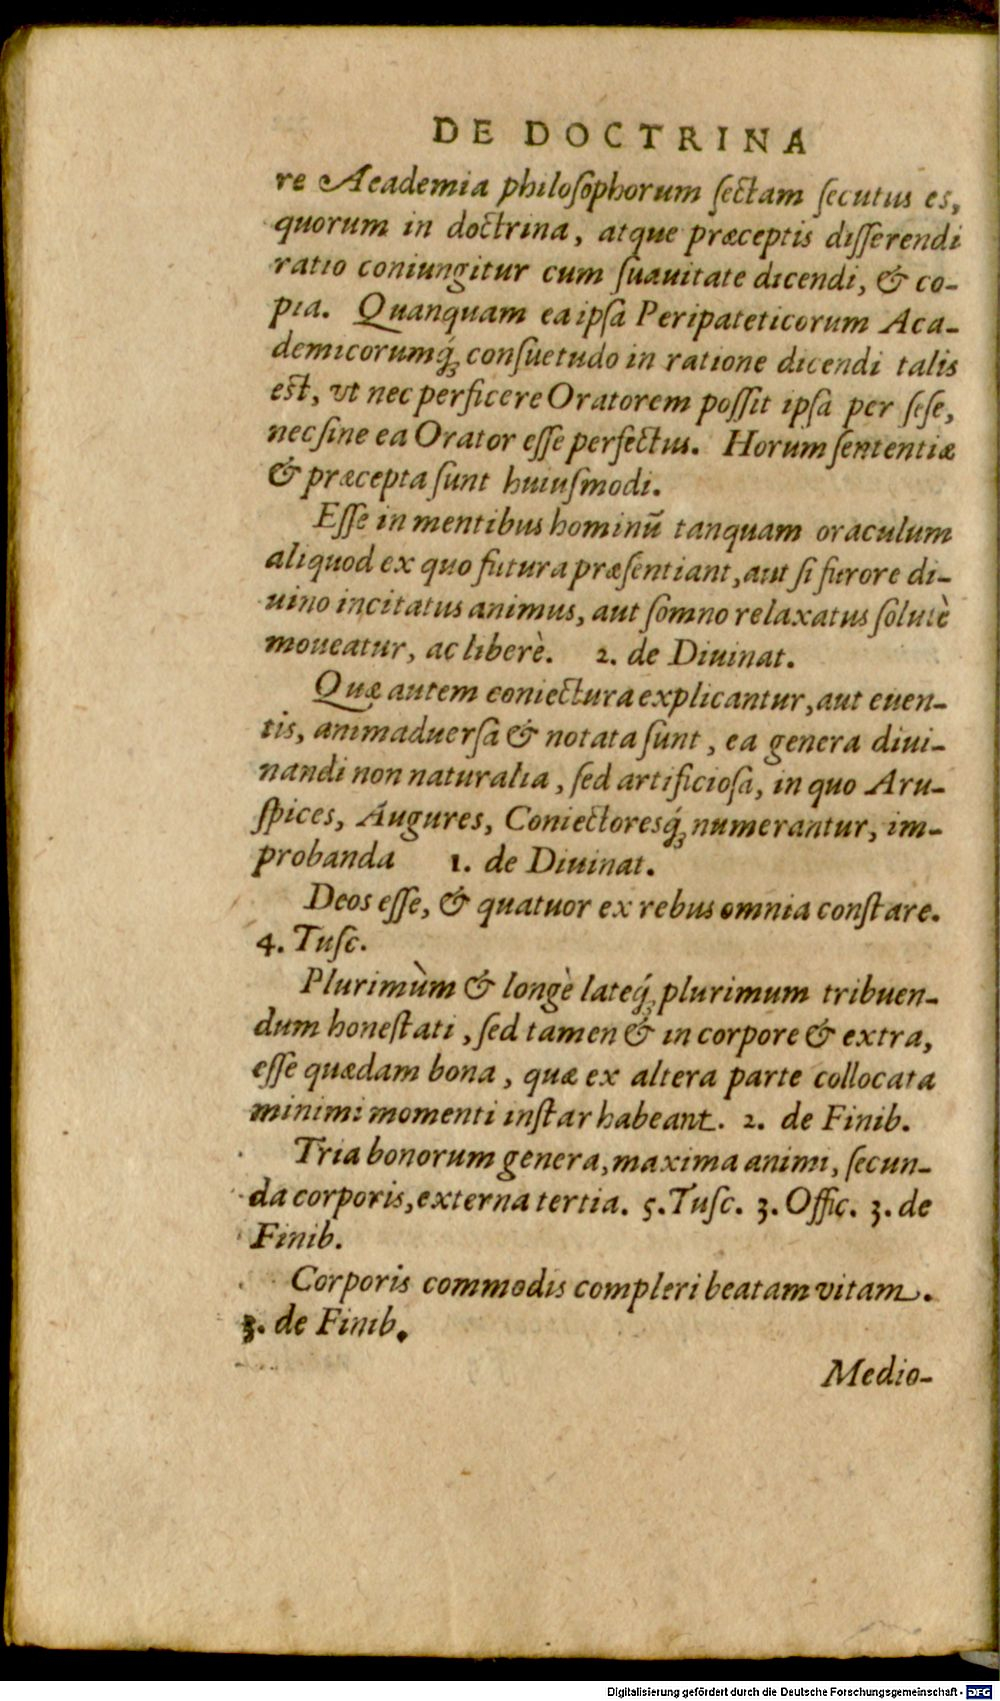 DE DOCTRINA
re Academia philosophorum sectam secutus es,
quorum in doctrina, atque præceptis disserendi
ratio coniungitur cum suauitate dicendi, & co-
pia. Quanquam ea ipsa Peripateticorum Aca-
demicorumq́; consuetudo in ratione dicendi talis
est, vt nec perficere Oratorem possit ipsa per sese,
nec sine ea Orator esse perfectus. Horum sententiæ
& præcepta sunt huiusmodi.
Esse in mentibus hominũ tanquam oraculum
aliquod ex quo futura præsentiant, aut si furore di-
uino incitatus animus, aut somno relaxatus solutè
moueatur, ac liberè. 2. de Diuinat.
Quæ autem coniectura explicantur, aut euen-
tis, animaduersa & notata sunt, ea genera diui-
nandi non naturalia, sed artificiosa, in quo Aru-
spices, Augures, Coniectoresq́; numerantur, im-
probanda 1. de Diuinat.
Deos esse, & quatuor ex rebus omnia constare.
4. Tusc.
Plurimùm & longè lateq́; plurimum tribuen-
dum honestati, sed tamen & in corpore & extra,
esse quædam bona, quæ ex altera parte collocata
minimi momenti instar habeant. 2. de Finib.
Tria bonorum genera, maxima animi, secun-
da corporis, externa tertia. 5. Tusc. 3. Offic. 3. de
Finib.
Corporis commodis compleri beatam vitam.
3. de Finib.
Medio-
Digitalisierung gefördert durch die Deutsche Forschungsgemeinschaft - DFG